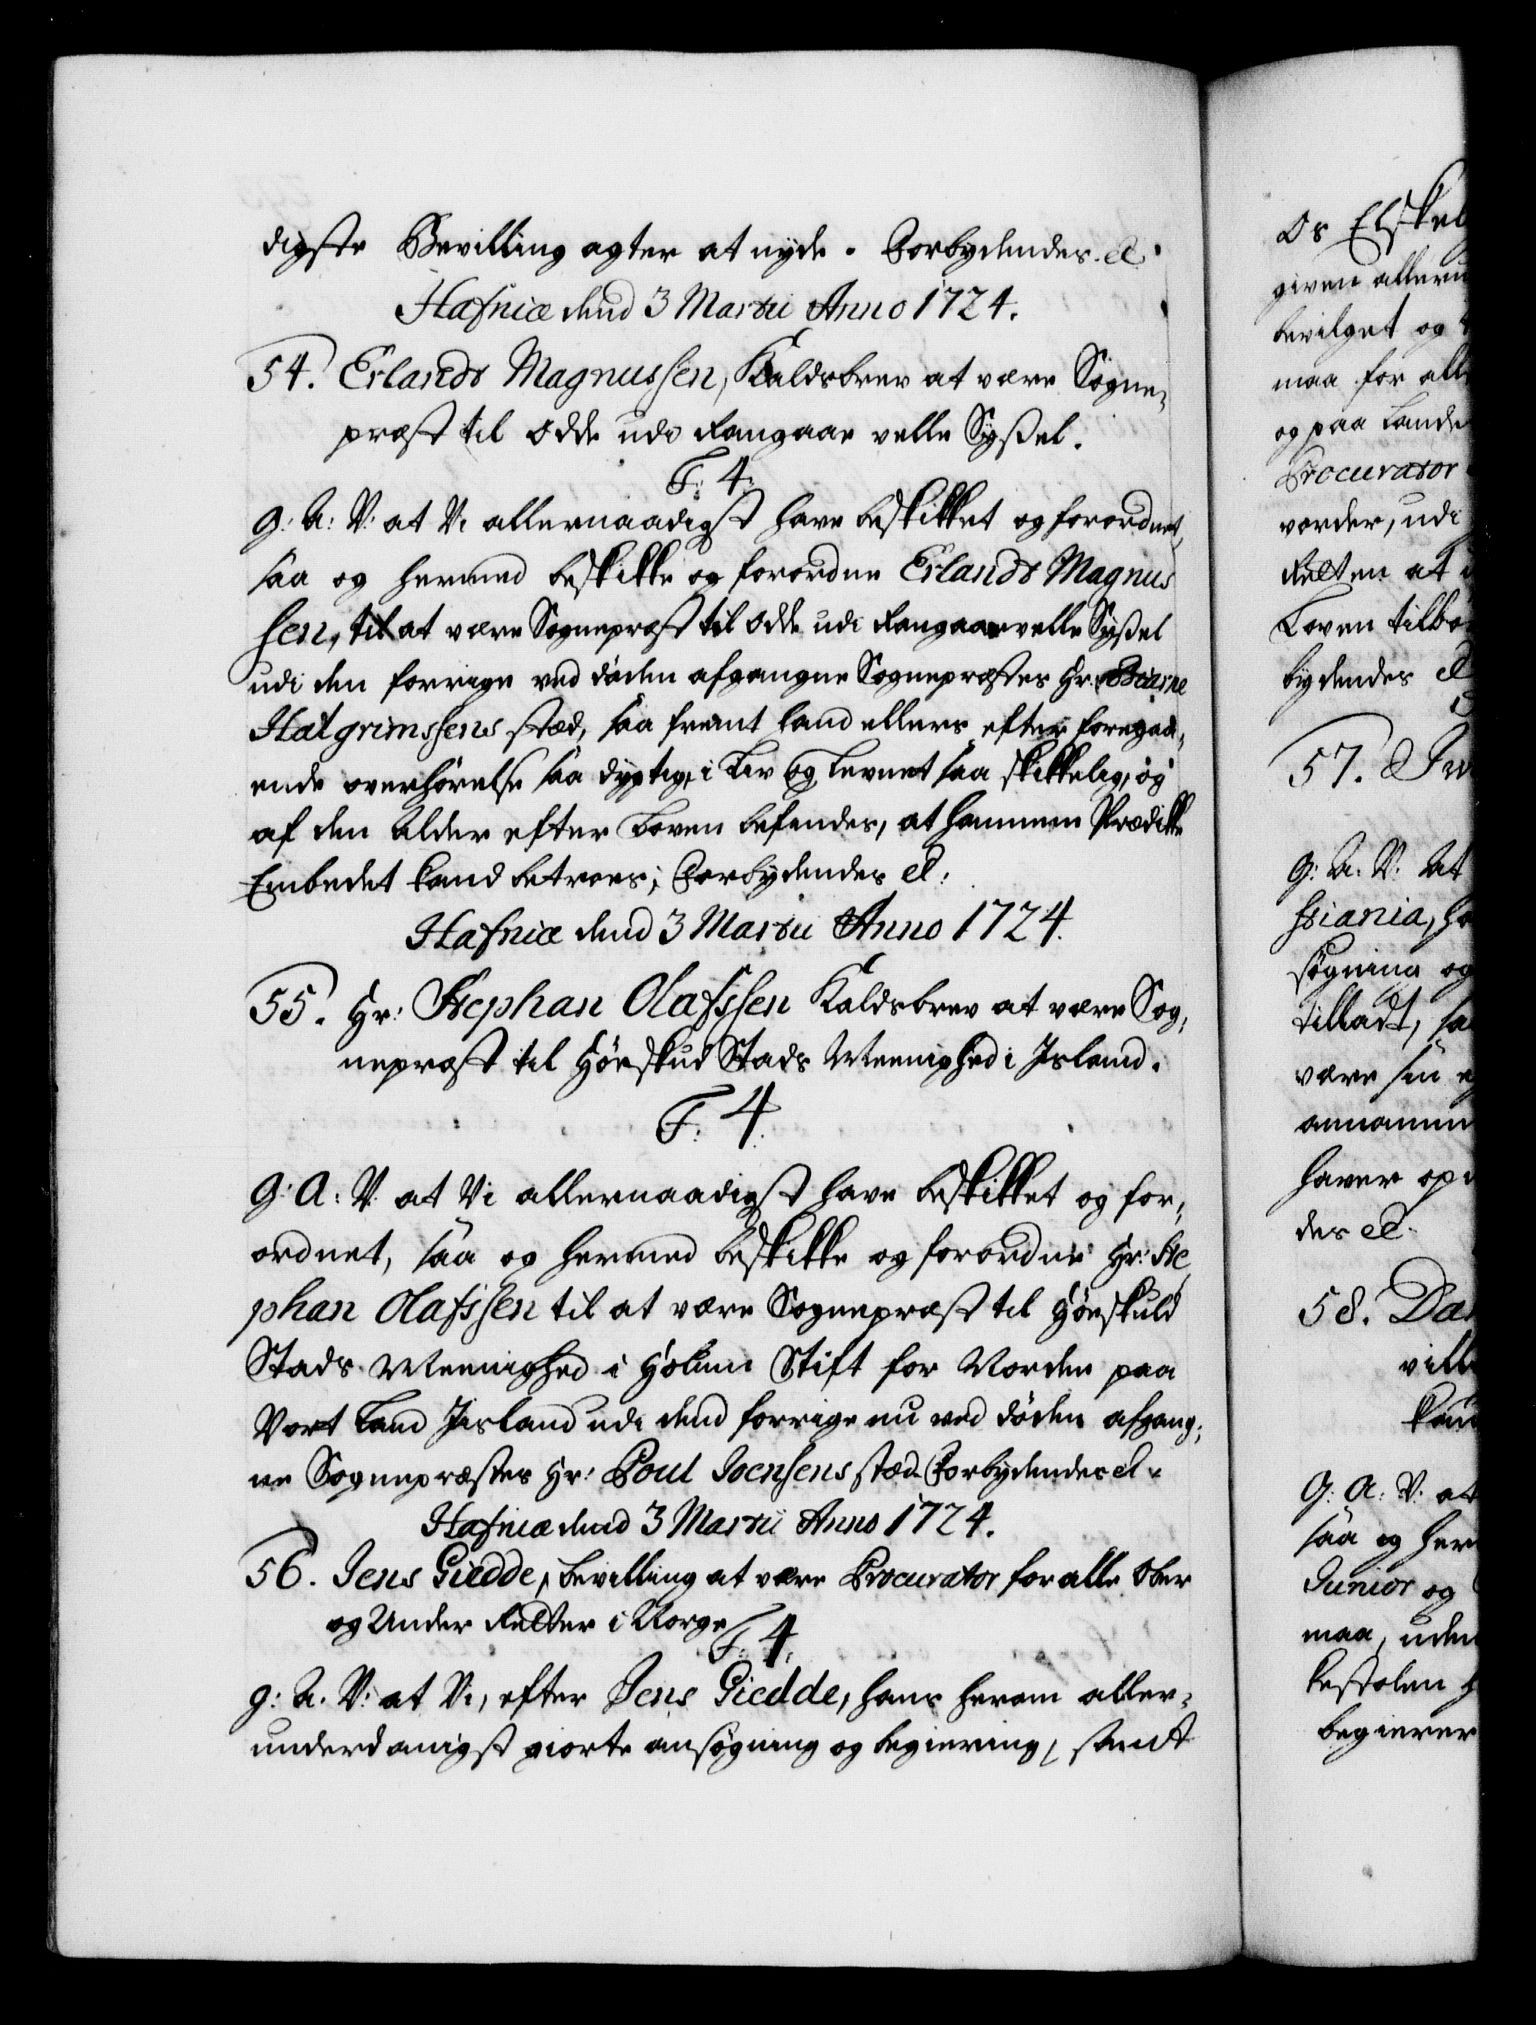 digste Bevilling agter at nyde. Forbydendes. etc.
Hafniæ dend 3 Martii Anno 1724.
54. Erlandr Magnussen, Kaldsbrev at være Sogne-
præst til Odde udi Rangaar velle Syssel.
F: 4.
G: A: V: at Vi allernaadigst have beskikket og forordnet,
saa og hermed beskikke og forordne Erlandr Magnus
sen, til at være Sognepræst til Odde udi Rangaarvelle Syssel
udi den forrige ved døden afgangne Sognepræstes Hr: Biarne
Halgrimssens stæd, saa fremt hand ellers efter foregaa-
ende overhørelse saa dygtig, i Liv og Levnet saa skikkelig, og
af den Alder efter Loven befindes, at hannem Prædike
Embedet kand betroes; Forbydendes etc:
Hafniæ dend 3 Martii Anno 1724.
55. Hr: Stephan Olafssen Kaldsbrev at være Sog-
nepræst til Høeskud Stads Meenighed i Island.
F: 4.
G: A: V: at Vi allernaadigst have beskikket og for-
ordnet, saa og hermed beskikke og forordne Hr: Ste
phan Olafssen til at være Sognepræst til Høeskuld
Stads Meenighed i Holum Stift for Norden paa
Vort Land Iisland udi dend forrige nu ved døden afgang-
ne Sognepræstes Hr: Poul Joensens stæd. Forbydendes etc.
Hafniæ dend 3 Martii Anno 1724.
56. Jens Giedde, bevilling at være Procurator for alle Ober
og Under Retter i Norge
F: 4.
G: A: V: at Vi, efter Jens Giedde, hans herom aller-
underdanigst giorte ansøgning og begiering, samt
Os Elskel
given alleru
bevilget og
maa for all
og paa Lande
Procurator
vorder, udi
Retten at
Loven tilbø
bydendes etc
57.
G: A: V: At
stiania, ha
søgning og
tilladt, sa
være sin
annamm
haver op
des etc.
58. Da
ville
G: A: V: at
saa og her
Junior og
maa, uden
kestolen
begierer